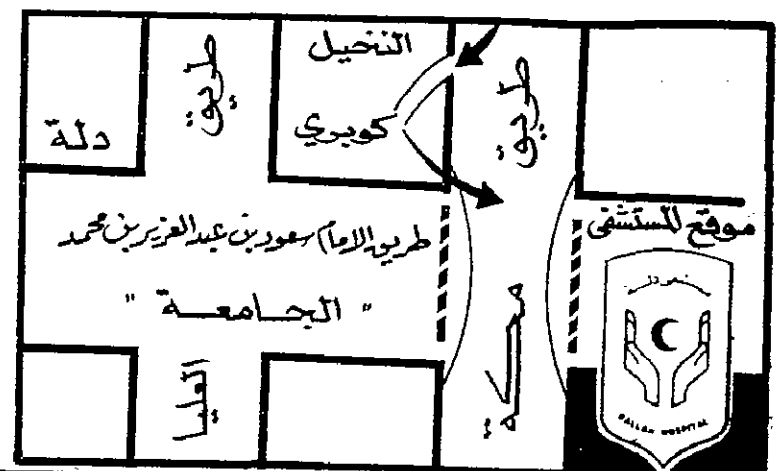 النخيل
كوبري
طريق
طريق
دلة
موقع المستشفى
طريق الامام سعود بن عبد العزيز بن محمد
" الجامعـــة "
مكة
العليا
DALLAH HOSPITAL